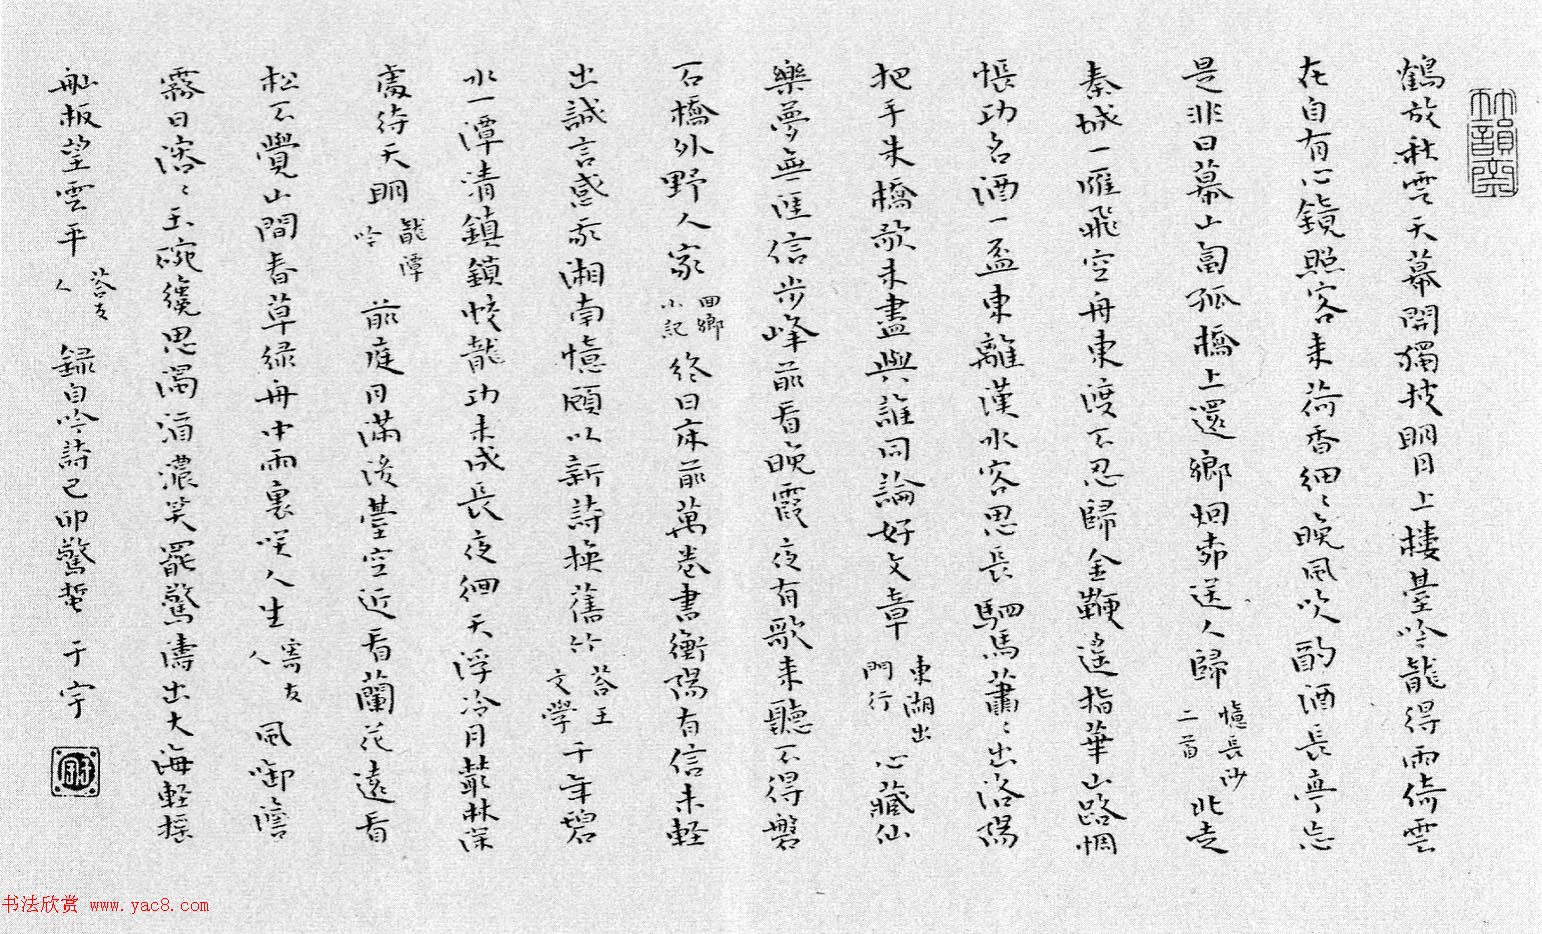 鶴放秋雲天幕開獨披明月上樓臺吟龍得雨倚雲
在自有心鏡照客来荷香細〻晚風吹酌酒長亭忘
是非日暮山匐孤橋上還鄉烟雨送人歸
憶長沙
二首
此去
秦城一雁飛空舟東渡不忍歸金鞭遥指華山路惆
悵功名酒一盃東離漢水客思長駟馬蕭〻出洛陽
把手朱橋歌未盡與誰同論好文章
東湖出
門行
心藏仙
樂夢無涯信步峰前看晚霞夜有歌来聽不得磐
石橋外野人家
回鄉
小記
終日床前萬卷書衡陽有信未輕
出誠言感予湘南憶願以新詩換舊竹
荅王
文學
千年碧
水一潭清鎮鎖蛟龍功未成長夜迴天浮冷月叢林深
處待天明
龍潭
吟
前庭月滿後臺空近看蘭花遠看
松不覺山間春草綠舟中雨裏咲人生
寄友
人
風御簷
霧日溶〻玉碗纔思濁酒濃笑罷驚濤出大海輕摇
舢板望雲平
荅友
人
録自吟詩己卯驚蟄 于宇
竹韻齋
书法欣赏 www.yac8.com